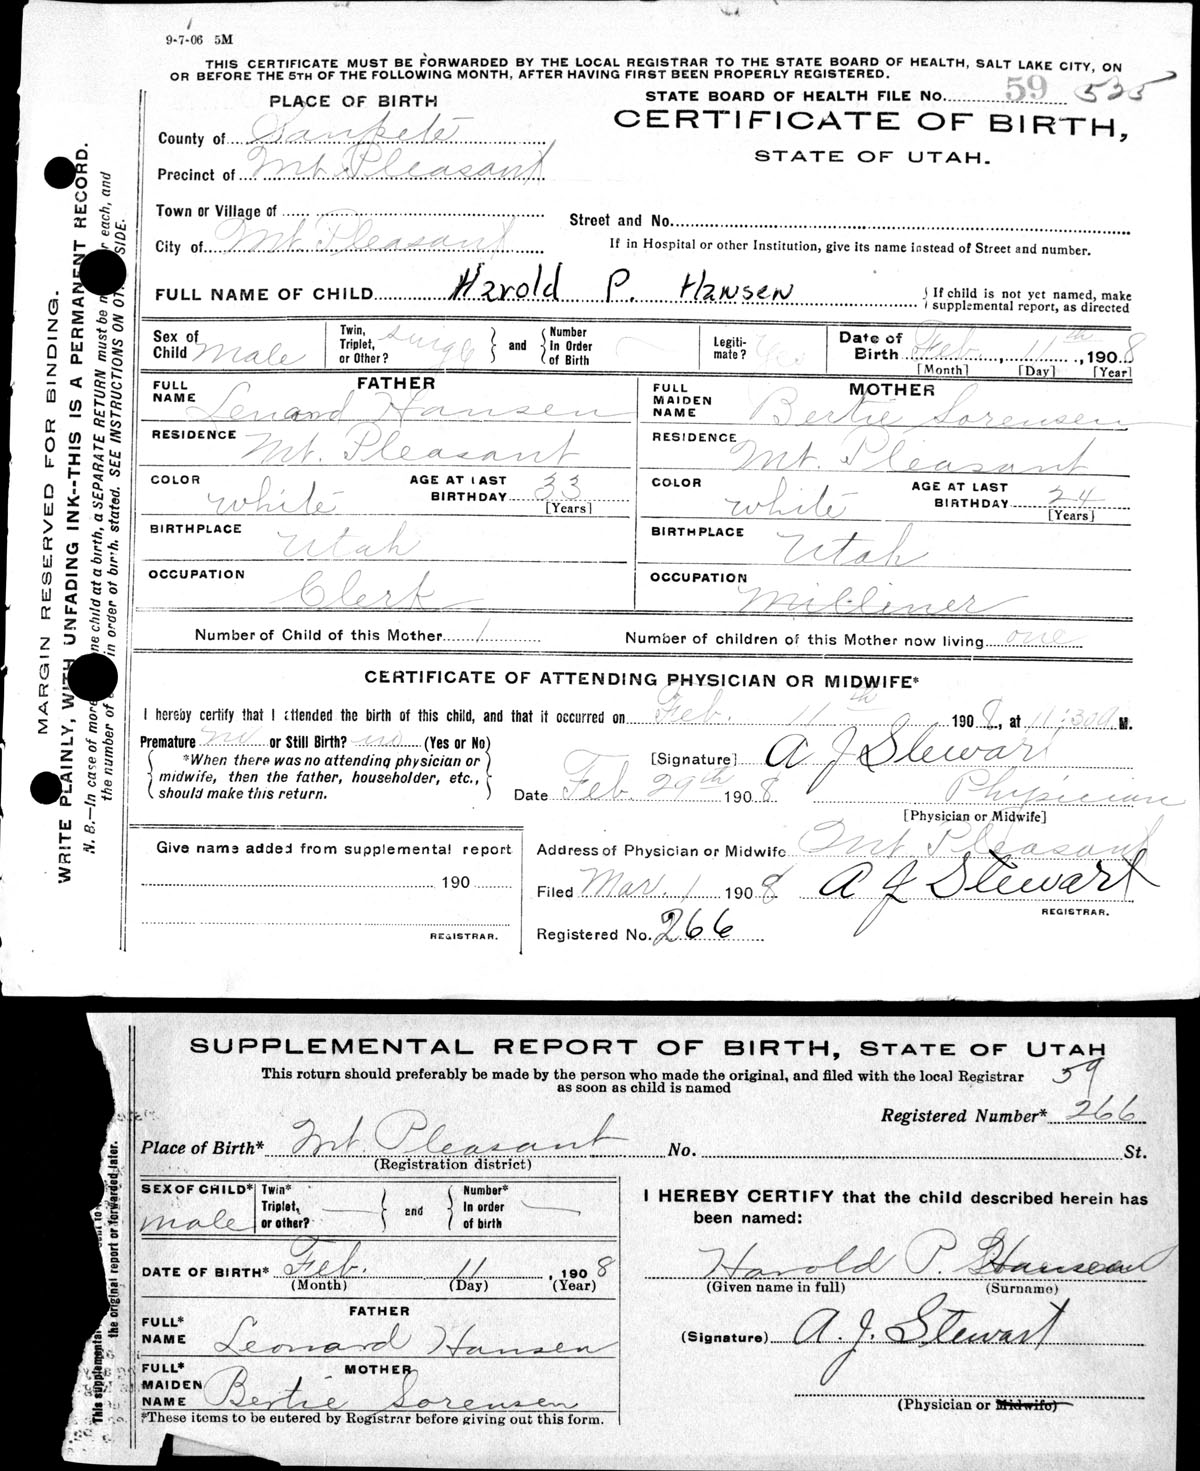 9-7-06 5M
THIS CERTIFICATE MUST BE FORWARDED BY THE LOCAL REGISTRAR TO THE STATE BOARD OF HEALTH, SALT LAKE CITY, ON
OR BEFORE THE 5TH OF THE FOLLOWING MONTH, AFTER HAVING FIRST BEEN PROPERLY REGISTERED.
PLACE OF BIRTH
STATE BOARD OF HEALTH FILE No. 59 535
County of Sanpete
CERTIFICATE OF BIRTH,
Precinct of Mt. Pleasant
STATE OF UTAH.
Town or Village of
Street and No.
City of Mt. Pleasant
If in Hospital or other Institution, give its name instead of Street and number.
FULL NAME OF CHILD Harold P. Hansen
If child is not yet named, make
supplemental report, as directed
Sex of Child Male
Twin, Triplet, or Other? Single
and
Number In Order of Birth
Legiti-mate? Yes
Date of Birth Feb. 11th, 1908
[Month] [Day] [Year]
FATHER
FULL NAME Lenard Hansen
MOTHER
FULL MAIDEN NAME Bertie Sorensen
RESIDENCE Mt. Pleasant
RESIDENCE Mt. Pleasant
COLOR White
AGE AT LAST BIRTHDAY 33
[Years]
COLOR White
AGE AT LAST BIRTHDAY 24
[Years]
BIRTHPLACE Utah
BIRTHPLACE Utah
OCCUPATION Clerk
OCCUPATION Milliner
Number of Child of this Mother 1
Number of children of this Mother now living one
CERTIFICATE OF ATTENDING PHYSICIAN OR MIDWIFE*
I hereby certify that I attended the birth of this child, and that it occurred on Feb. 11th 1908, at 11:30 a. M.
Premature no or Still Birth? no (Yes or No)
*When there was no attending physician or
midwife, then the father, householder, etc.,
should make this return.
[Signature] A J Stewart
Date Feb. 29th 1908
Physician
[Physician or Midwife]
Give name added from supplemental report
190
REGISTRAR.
Address of Physician or Midwife Mt Pleasant
Filed Mar. 1 1908 A J Stewart
REGISTRAR.
Registered No. 266
MARGIN RESERVED FOR BINDING.
WRITE PLAINLY, WITH UNFADING INK--THIS IS A PERMANENT RECORD.
N. B.—In case of more ne child at a birth, a SEPARATE RETURN must be r each, and
the number of in order of birth, stated. SEE INSTRUCTIONS ON OT SIDE.
SUPPLEMENTAL REPORT OF BIRTH, STATE OF UTAH
This return should preferably be made by the person who made the original, and filed with the local Registrar
as soon as child is named
59
Registered Number* 266
Place of Birth* Mt. Pleasant No. St.
(Registration district)
SEX OF CHILD* Male
Twin* Triplet, or other?
and
Number* In order of birth
I HEREBY CERTIFY that the child described herein has
been named:
DATE OF BIRTH* Feb. 11, 1908
(Month) (Day) (Year)
Harold P. Hansen
(Given name in full) (Surname)
FATHER
FULL* NAME Leonard Hansen
(Signature) A. J. Stewart
MOTHER
FULL* MAIDEN NAME Bertie Sorensen
(Physician or Midwife)
*These items to be entered by Registrar before giving out this form.
This supplemental
the original report or forwarded later.